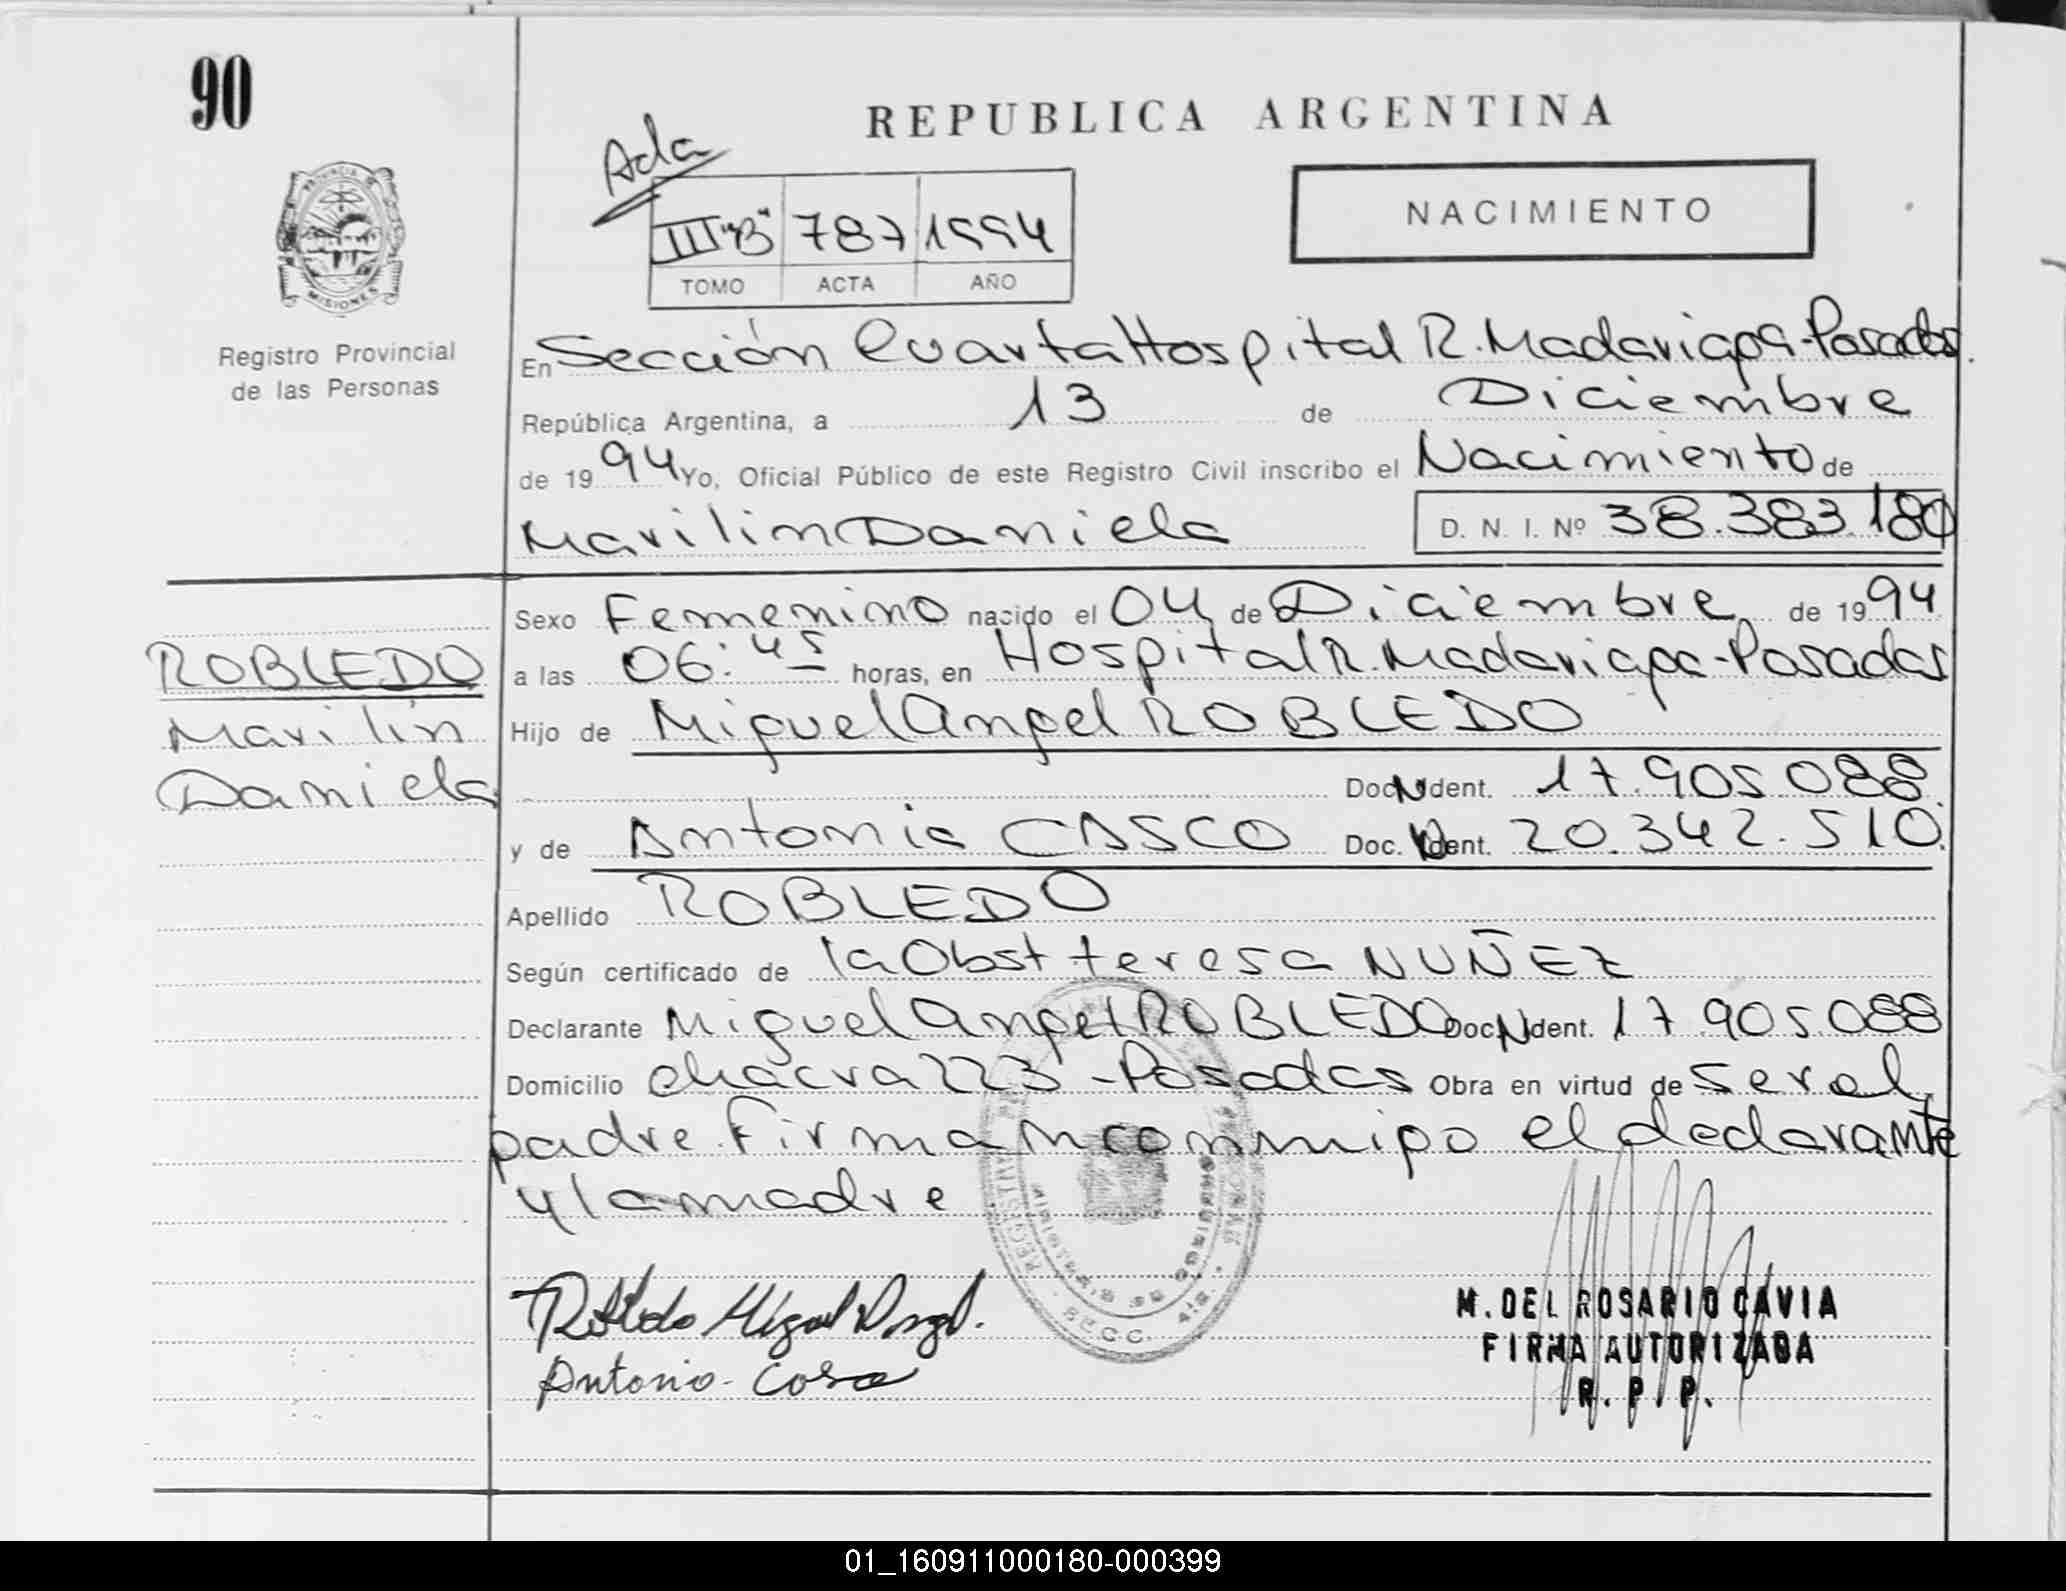 90
REPUBLICA ARGENTINA
Ada
NACIMIENTO
III "B" 787 1994
TOMO ACTA AÑO
PROVINCIA DE
MISIONES
Registro Provincial
de las Personas
En Sección Cuarta Hospital R. Madariaga-Posadas.
República Argentina, a 13 de Diciembre
de 1994 Yo, Oficial Público de este Registro Civil inscribo el Nacimiento de
Marilin Daniela D. N. I. Nº 38.383.180
Sexo Femenino nacido el 04 de Diciembre de 1994
ROBLEDO
Marilin
Daniela
a las 06:45 horas, en Hospital R. Madariaga-Posadas
Hijo de Miguel Angel ROBLEDO
Doc N dent. 17.905.088.
y de Antonia CASCO Doc. N dent. 20.342.510.
Apellido ROBLEDO
Según certificado de la Obst teresa NUÑEZ
Declarante Miguel Angel ROBLEDO Doc N dent. 17.905.088
Domicilio chacra 223 -Posadas Obra en virtud de ser el
padre. Firman conmigo el declarante
y la madre
Robledo Miguel Angel.
Antonia
M. DEL ROSARIO CAVIA
FIRMA AUTORIZADA
R. P. P.
01_160911000180-000399